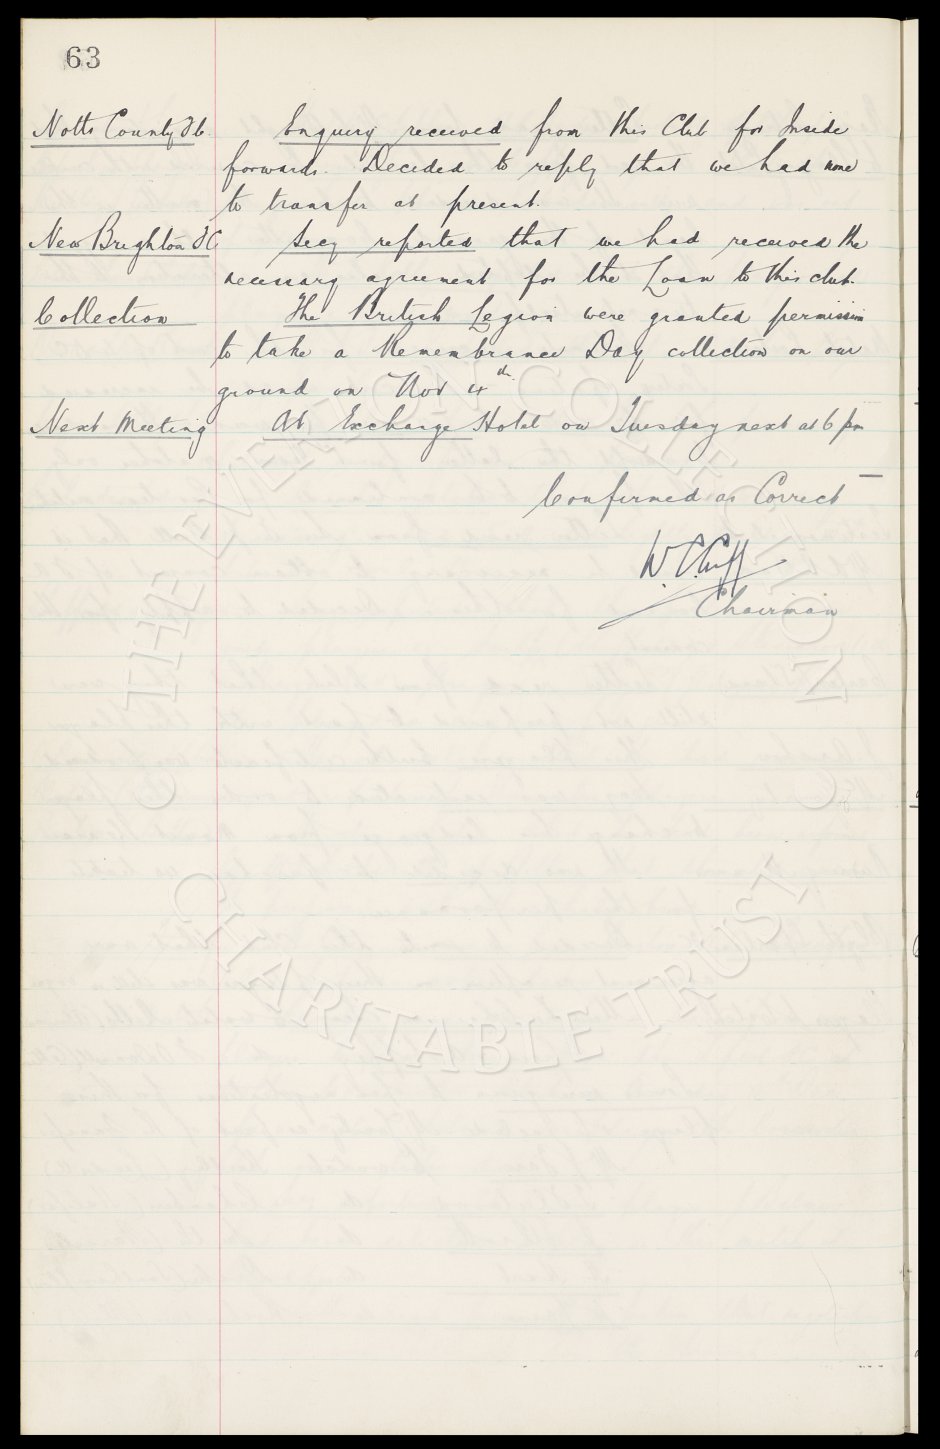 63
Notts County Fc. Enquiry received from this Club for Inside
forwards. Decided to reply that we had none
to transfer at present.
New Brighton FC Secy reported that we had received the
necessary agreement for the Loan to this club.
Collection The British Legion were granted permission
to take a Remembrance Day collection on our
ground on Nov 4th.
Next Meeting At Exchange Hotel on Tuesday next at 6 pm
Confirmed as Correct —
W. C. Cuff
Chairman
© THE EVERTON COLLECTION
CHARITABLE TRUST